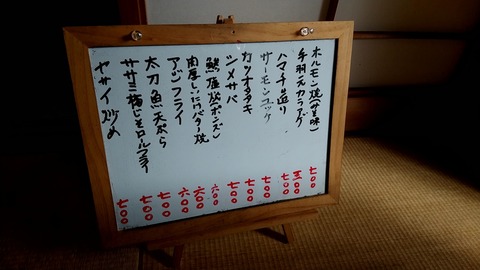 ホルモン焼(甘味) 七〇〇
手羽元カラアゲ 三〇〇
ハマチ造り 七〇〇
サーモンユッケ 七〇〇
カツオタタキ 七〇〇
シメサバ 七〇〇
鯨塩焼(ポンズ) 六〇〇
肉厚しいたけバター焼 六〇〇
アジフライ 六〇〇
太刀魚天ぷら 七〇〇
ササミ梅じそロールフライ 七〇〇
ヤサイ炒め 七〇〇